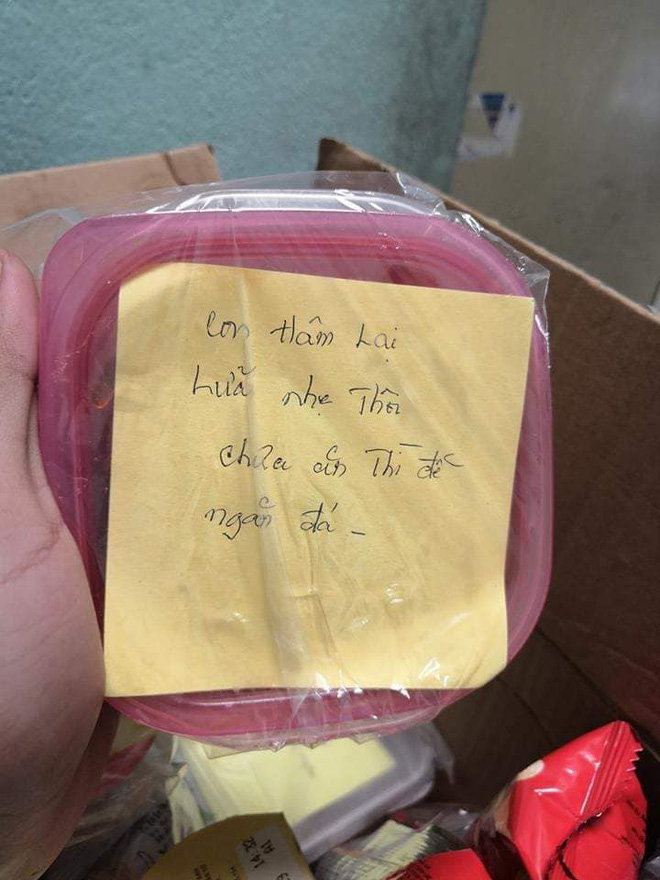 Con Hâm Lại
Lửa nhẹ Thôi
chưa ăn Thì để
ngăn đá -
14:32
A1